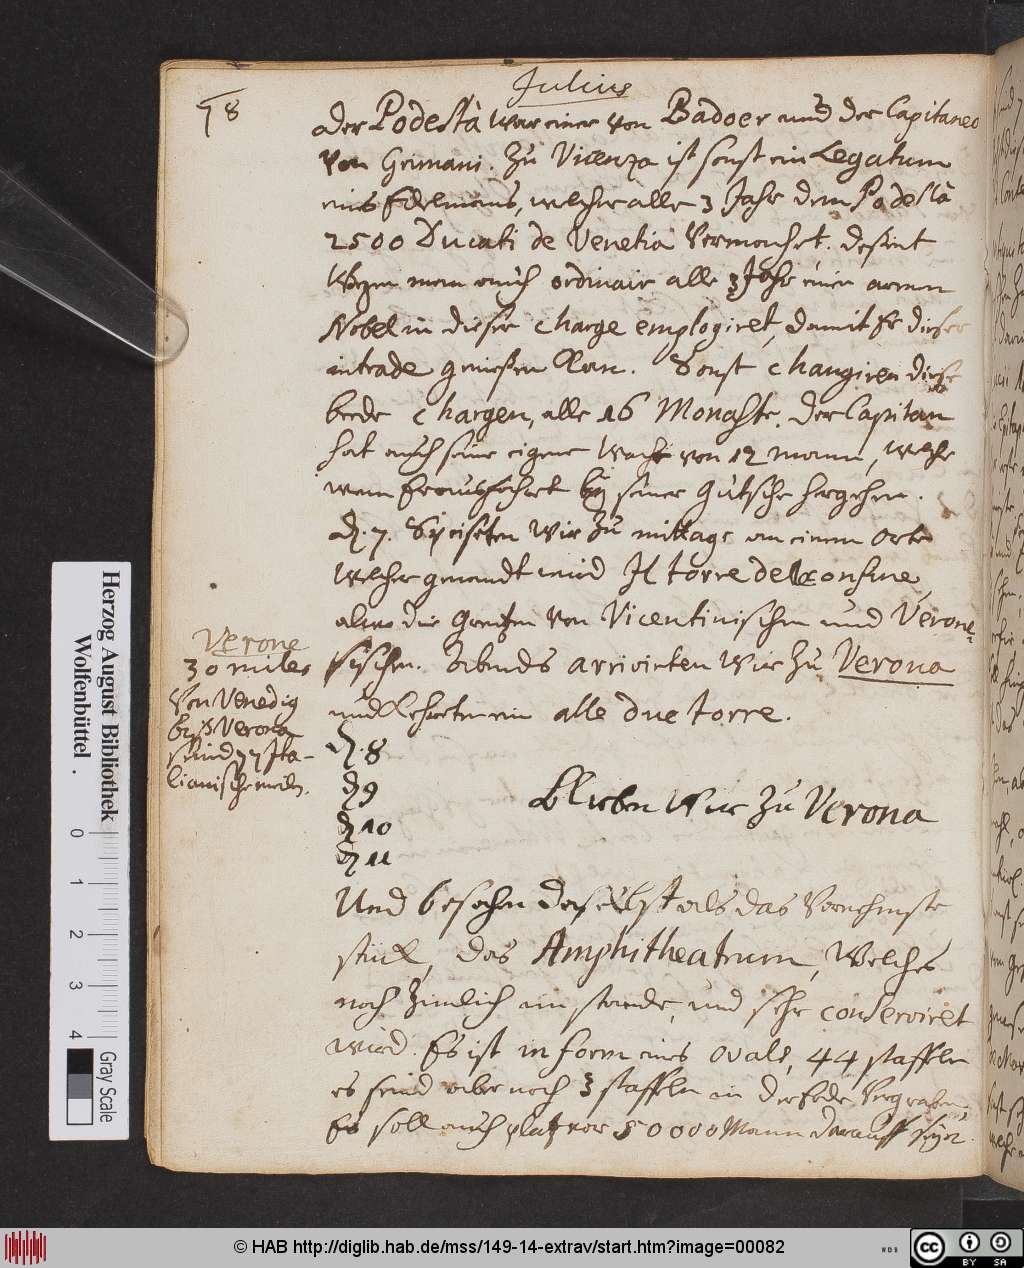 78
Julius
der Podestà war einer von Badoer und der Capitaneo
von Grimani. Zu Vicenza ist sonst ein Legatum
eines Edelmans, welcher alle 3 Jahr dem Podestà
2500 Ducati de Venetia vermachet.
wegen man auch ordinair alle 3 Jahr einen armen
Nobel in dieser charge employiret, damit Er dieser
intrade genießen kan. Sonst changiren diese
beede chargen, alle 16 Monahte. Der Capitan
hat auch seine eigene Wacht von 12 mann, welche
wenn Er ausfehret bey seiner Gutsche hergehen.
D. 7. Speiseten wir zu mittage an einem Orte
welcher genandt wird Il torre del confine,
alwo die Grentzen von Vicentinischen und Verone-
sischen. Abends arrivirten wir zu Verona
und kehreten ein alle due torre.
Verone
30 miles
Von Venedig
biß Verona
seind 77 Ita-
lianische meiln.
D. 8
D 9
D 10
D 11
Blieben wir zu Verona
Und besahen daselbst als das Vornehmste
stück, das Amphitheatrum, Welches
noch zimlich im stande, und sehr conserviret
wird. Es ist in form eines Ovals, 44 staffeln
es seind aber noch 3 staffeln in der Erde vergraben,
Es soll auch platz vor 50000 Mann darauff seyn.
Herzog August Bibliothek
Wolfenbüttel.
0 1 2 3 4
Gray Scale
© HAB http://diglib.hab.de/mss/149-14-extrav/start.htm?image=00082
WDB
cc BY SA